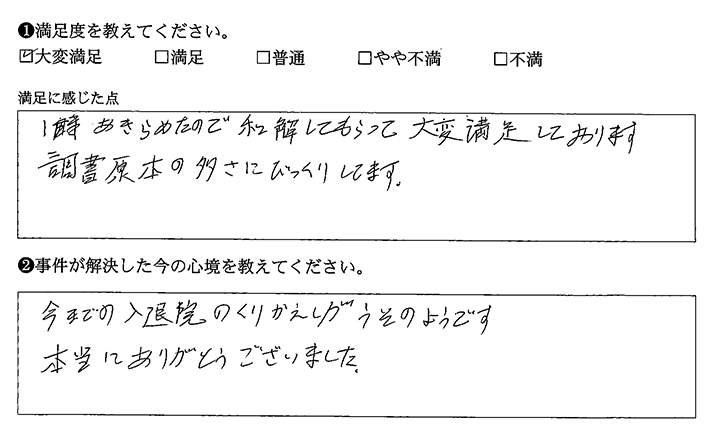 ❶満足度を教えてください。
☑大変満足 □満足 □普通 □やや不満 □不満
満足に感じた点
1時あきらめたので和解してもらって大変満足しております
調書原本の多さにびっくりしてます。
❷事件が解決した今の心境を教えてください。
今までの入退院のくりかえしがうそのようです
本当にありがとうございました。